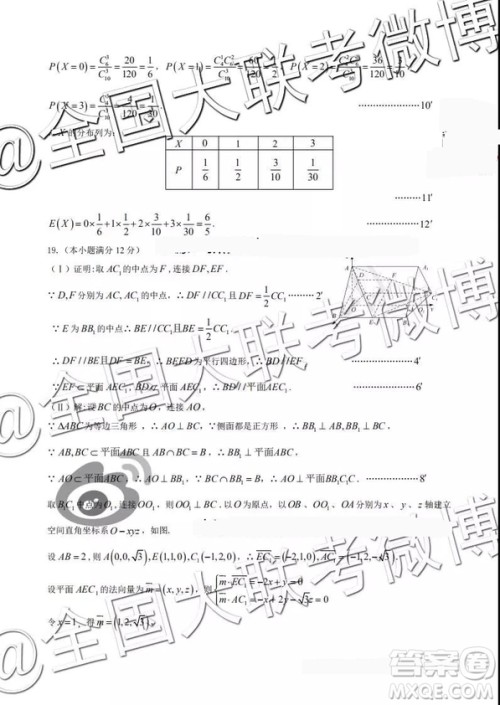 P(X=0)=C_6^3/C_10^3=20/120=1/6, P(X=1)=C_4^1C_6^2/C_10^3=60/120=1/2, P(X=2)=C_4^2C_6^1/C_10^3=36/120=3/10
P(X=3)=C_4^3/C_10^3=4/120=1/30. ……………… 10′
X的分布列为:
X 0 1 2 3
P 1/6 1/2 3/10 1/30
……… 11′
E(X)=0×1/6+1×1/2+2×3/10+3×1/30=6/5. ……… 12′
19.(本小题满分 12 分)
(Ⅰ)证明:取AC₁的中点为F,连接DF,EF.
∵D,F分别为AC,AC₁的中点,∴DF//CC₁且DF=1/2CC₁ ……… 2′
∵E为BB₁的中点∴BE//CC₁且BE=1/2CC₁.
∴DF//BE且DF=BE∴BEFD为平行四边形,∴BD//EF. 4′
∵EF⊂平面AEC₁,BD⊄平面AEC₁∴BD//平面AEC₁. 6′
(Ⅱ)解:设BC的中点为O,连接AO.
∵ΔABC为等边三角形,∴AO⊥BC.∵侧面都是正方形,∴BB₁⊥AB,BB₁⊥BC.
∵AB,BC⊂平面ABC且AB∩BC=B,∴BB₁⊥平面ABC.
∵AO⊂平面ABC,∴AO⊥BB₁.∵BB₁∩BC=B,∴AO⊥平面BB₁C₁C. 8′
取B₁C₁中点为O₁,连接OO₁,则OO₁⊥BC.以O为原点,以OB、OO₁、OA分别为x、y、z轴建立
空间直角坐标系O—xyz,如图.
设AB=2,则A(0,0,√3),E(1,1,0),C₁(-1,2,0),∴EC₁=(-2,1,0),AC₁=(-1,2,-√3).
设平面AEC₁的法向量为m=(x,y,z),则{m·EC₁=-2x+y=0
m·AC₁=-x+2y-√3z=0
令x=1,得m=(1,2,√3).
@全国大联考微博
@全国大联考微博
@全国大联考微博
答案圈
MXQE.COM